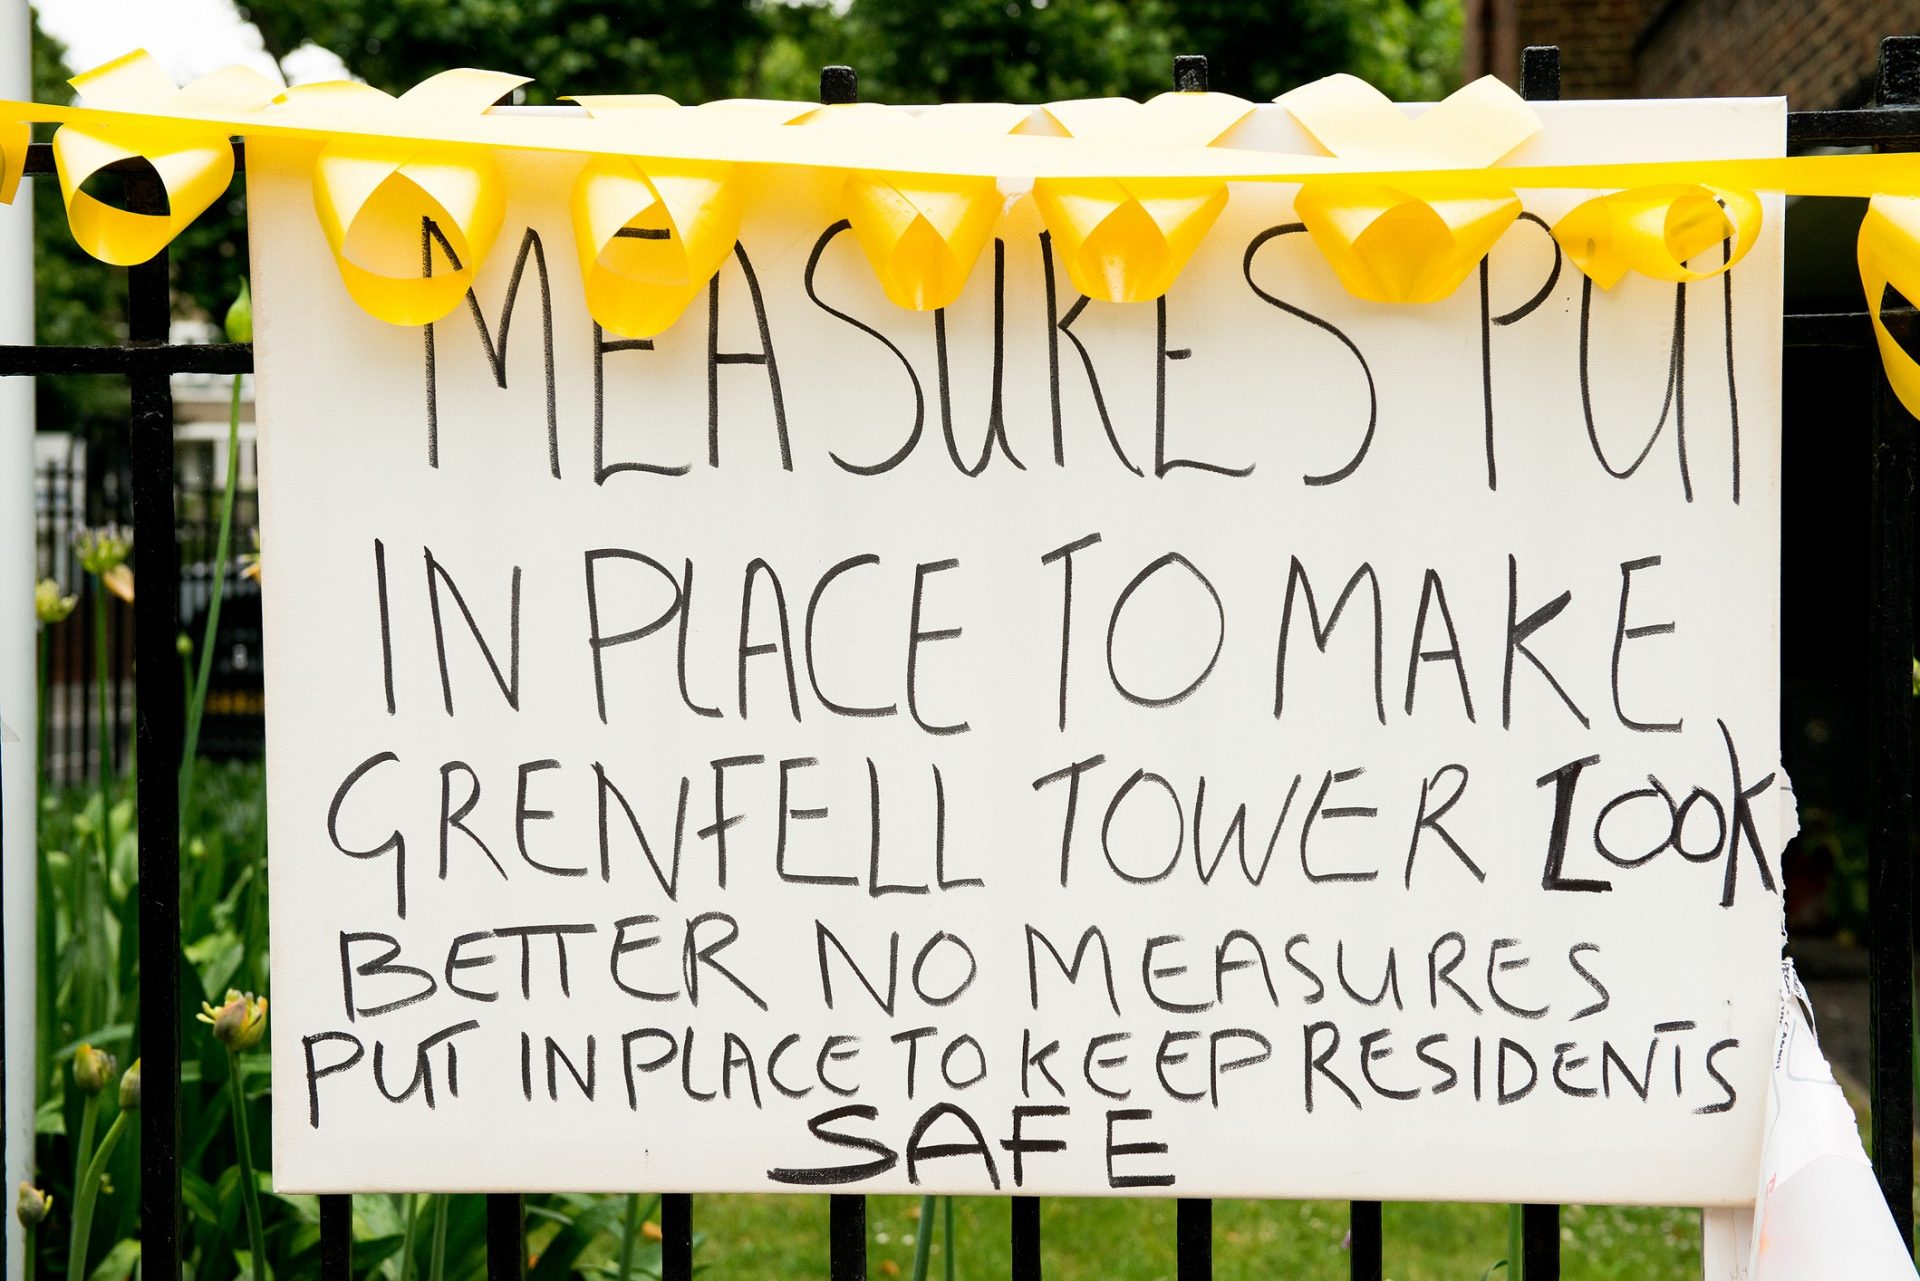 MEASURES PUT
IN PLACE TO MAKE
GRENFELL TOWER LOOK
BETTER NO MEASURES
PUT IN PLACE TO KEEP RESIDENTS
SAFE